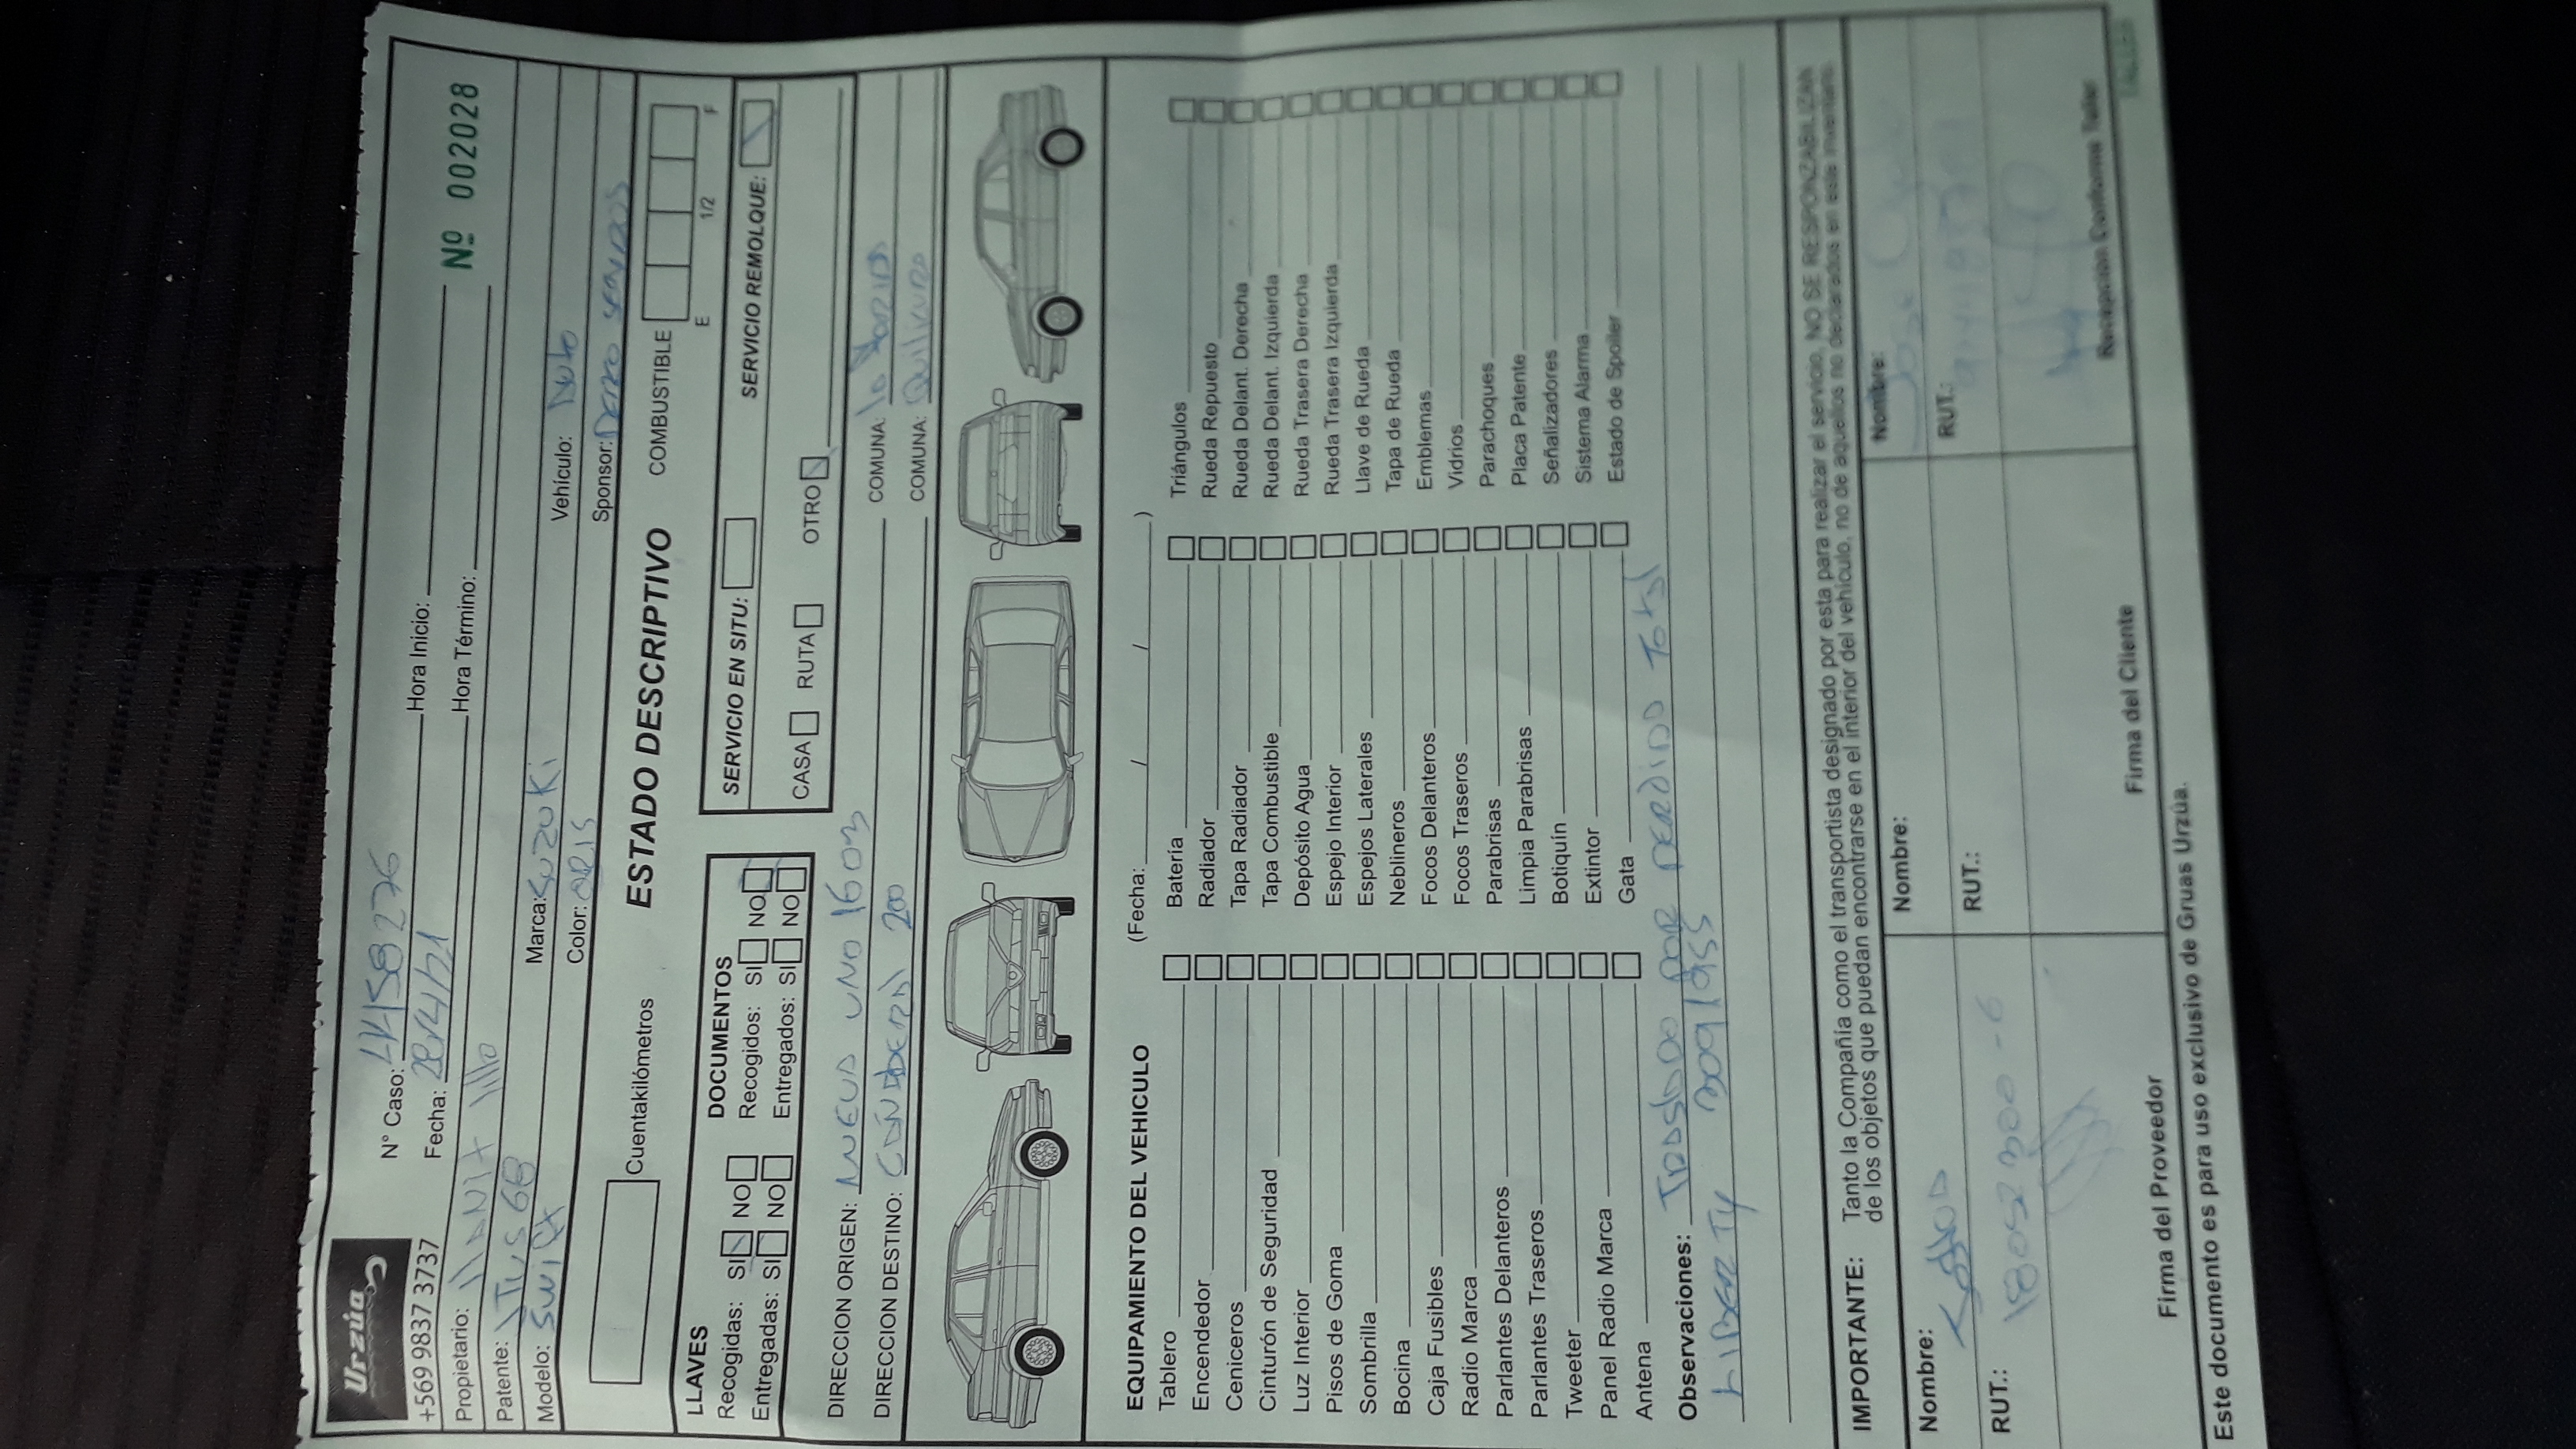 Urzúa
+569 9837 3737
N° Caso:
Hora Inicio:
Nº 002028
Fecha:
Hora Término:
Propietario:
Patente:
Marca: Suzuki
Vehículo: Auto
Modelo: Swift
Color: Gris
Sponsor:
Cuentakilómetros
ESTADO DESCRIPTIVO
COMBUSTIBLE
E 1/2 F
LLAVES
Recogidas: SI NO
Entregadas: SI NO
DOCUMENTOS
Recogidos: SI NO
Entregados: SI NO
SERVICIO EN SITU:
SERVICIO REMOLQUE:
CASA RUTA OTRO
DIRECCION ORIGEN: NUEVA UNO
COMUNA:
DIRECCION DESTINO: 200
COMUNA: Quilicura
EQUIPAMIENTO DEL VEHICULO (Fecha: / / )
Tablero
Encendedor
Ceniceros
Cinturón de Seguridad
Luz Interior
Pisos de Goma
Sombrilla
Bocina
Caja Fusibles
Radio Marca
Parlantes Delanteros
Parlantes Traseros
Tweeter
Panel Radio Marca
Antena
Batería
Radiador
Tapa Radiador
Tapa Combustible
Depósito Agua
Espejo Interior
Espejos Laterales
Neblineros
Focos Delanteros
Focos Traseros
Parabrisas
Limpia Parabrisas
Botiquín
Extintor
Gata
Triángulos
Rueda Repuesto
Rueda Delant. Derecha
Rueda Delant. Izquierda
Rueda Trasera Derecha
Rueda Trasera Izquierda
Llave de Rueda
Tapa de Rueda
Emblemas
Vidrios
Parachoques
Placa Patente
Señalizadores
Sistema Alarma
Estado de Spoiler
Observaciones: Traslado por perdida Total
LIBERTY
IMPORTANTE: Tanto la Compañía como el transportista designado por esta para realizar el servicio, NO SE RESPONZABILIZAN
de los objetos que puedan encontrarse en el interior del vehículo, no de aquellos no declarados en este inventario.
Nombre:
RUT.: 18052300-6
Firma del Proveedor
Nombre:
RUT.:
Firma del Cliente
Nombre:
RUT.:
Recepción Conforme Taller
Este documento es para uso exclusivo de Gruas Urzúa.
TALLER